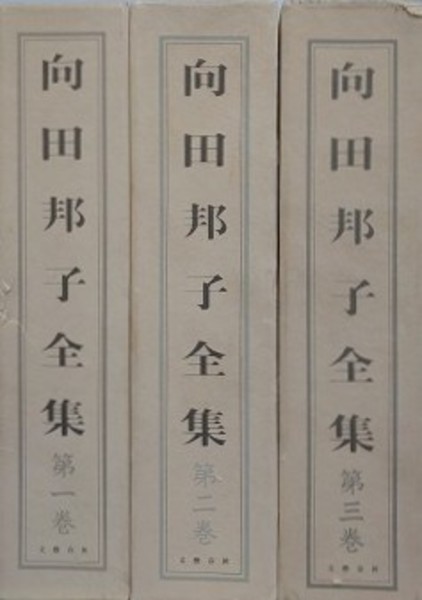 向田邦子全集
第一巻
文藝春秋
向田邦子全集
第二巻
文藝春秋
向田邦子全集
第三巻
文藝春秋